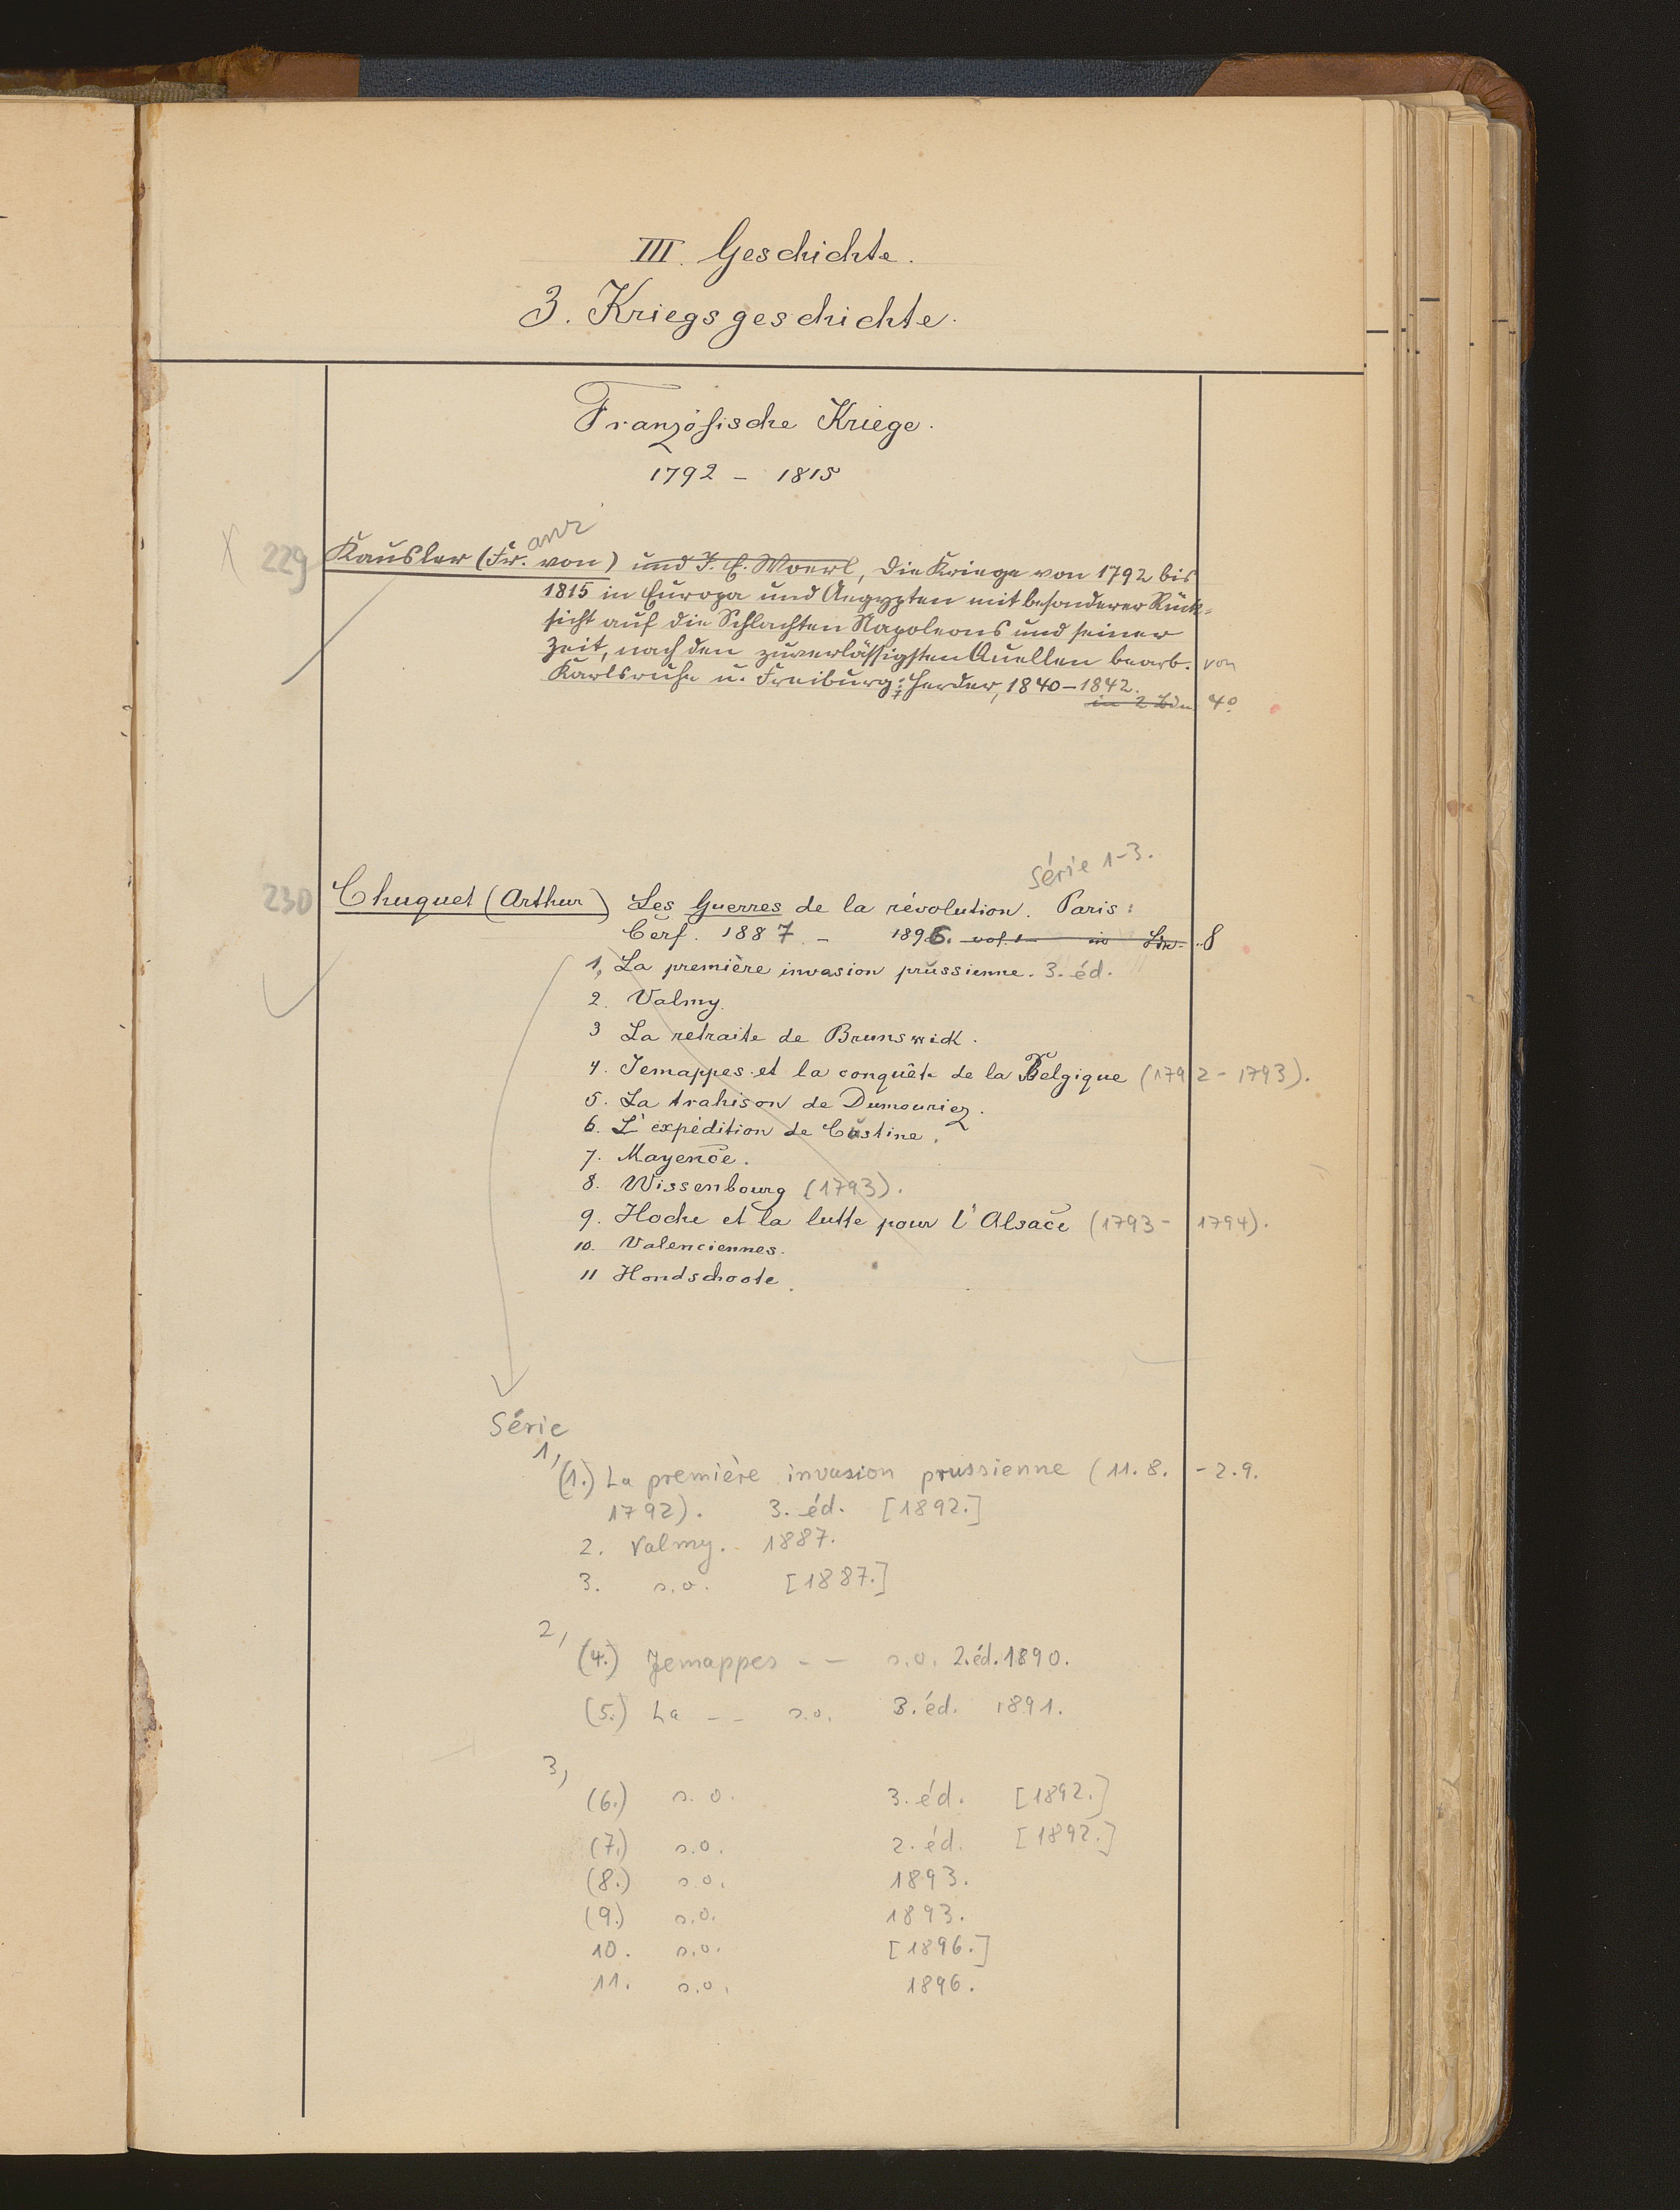 III. Geschichte.
3. Kriegsgeschichte.
Französische Kriege.
1792 - 1815
anz
X 229 Kausler (Fr. von) und J. E. Woerl, die Kriege von 1792 bis
1815 in Europa und Aegypten mit besonderer Rück-
sicht auf die Schlachten Napoleons und seiner
Zeit, nach den zuverlässigsten Quellen bearb. von
Karlsruhe u. Freiburg: Herder, 1840-1842.
in 2 Bdn. 4°
Série 1-3.
230 Chuquet (Arthur) Les Guerres de la révolution. Paris:
Cerf. 1887. - 1896. vol. 1- in Bdn. 8
1, La première invasion prussienne. 3. éd.
2. Valmy.
3 La retraite de Brunswick.
4. Jemappes et la conquête de la Belgique (1792-1793).
5. La trahison de Dumouriez.
6. L'expédition de Custine.
7. Mayence.
8. Wissenbourg (1793).
9. Hoche et la lutte pour l'Alsace (1793-1794).
10. Valenciennes.
11 Hondschoote.
Série
1,
(1.) La première invasion prussienne (11.8.-2.9.
1792). 3. éd. [1892.]
2. Valmy. 1887.
3. s.o. [1887.]
2,
(4.) Jemappes -- s.o. 2. éd. 1890.
(5.) La -- s.o. 3. éd. 1891.
3,
(6.) s.o. 3. éd. [1892.]
(7.) s.o. 2. éd. [1892.]
(8.) s.o. 1893.
(9.) s.o. 1893.
10. s.o. [1896.]
11. s.o. 1896.